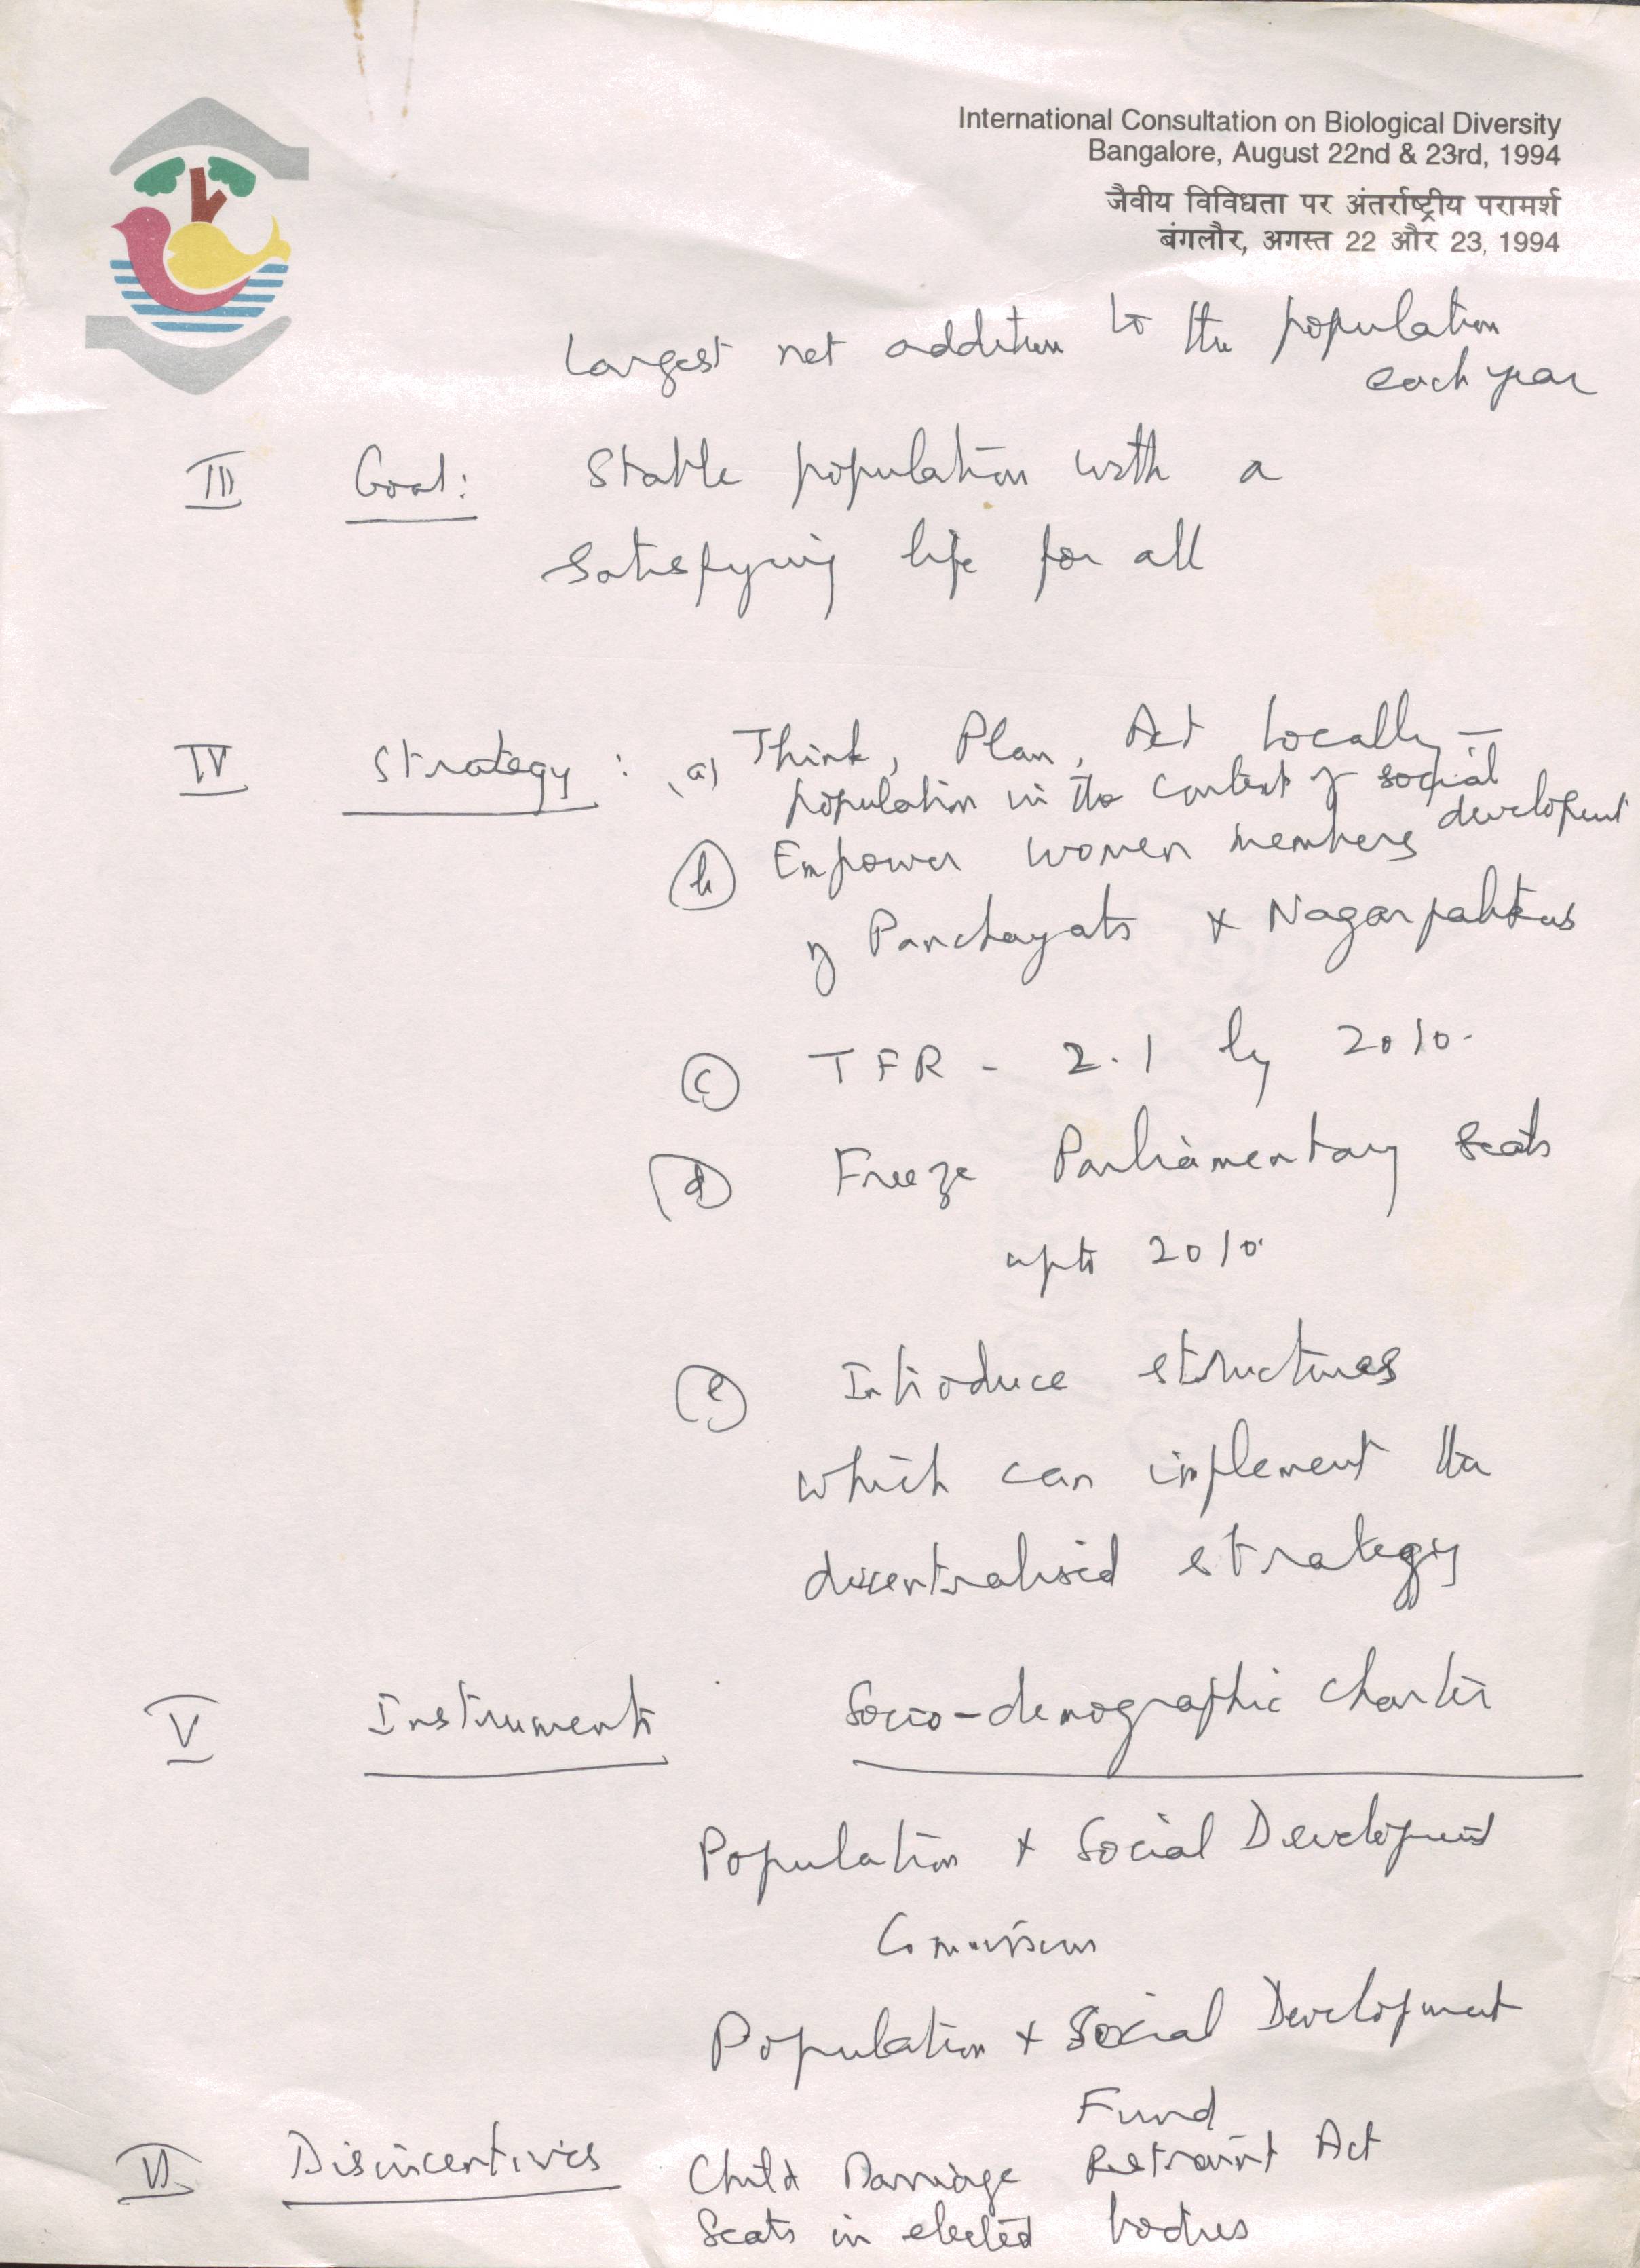 International Consultation on Biological Diversity
Bangalore, August 22nd & 23rd, 1994
जैवीय विविधता पर अंतर्राष्ट्रीय परामर्श
बंगलौर, अगस्त 22 और 23, 1994
largest net addition to the population
each year
III Goal: Stable population with a
satisfying life for all
IV Strategy : (a) Think, Plan, Act locally –
population in the context of social
development
(b) Empower women members
of Panchayats & Nagarpalikas
(c) TFR - 2.1 by 2010.
(d) Freeze Parliamentary seats
upto 2010.
(e) Introduce structures
which can implement the
decentralised strategy
V Instruments Socio-demographic charter
Population & Social Development
Commission
Population & Social Development
Fund
VI Disincentives Child Marriage Restraint Act
Seats in elected bodies